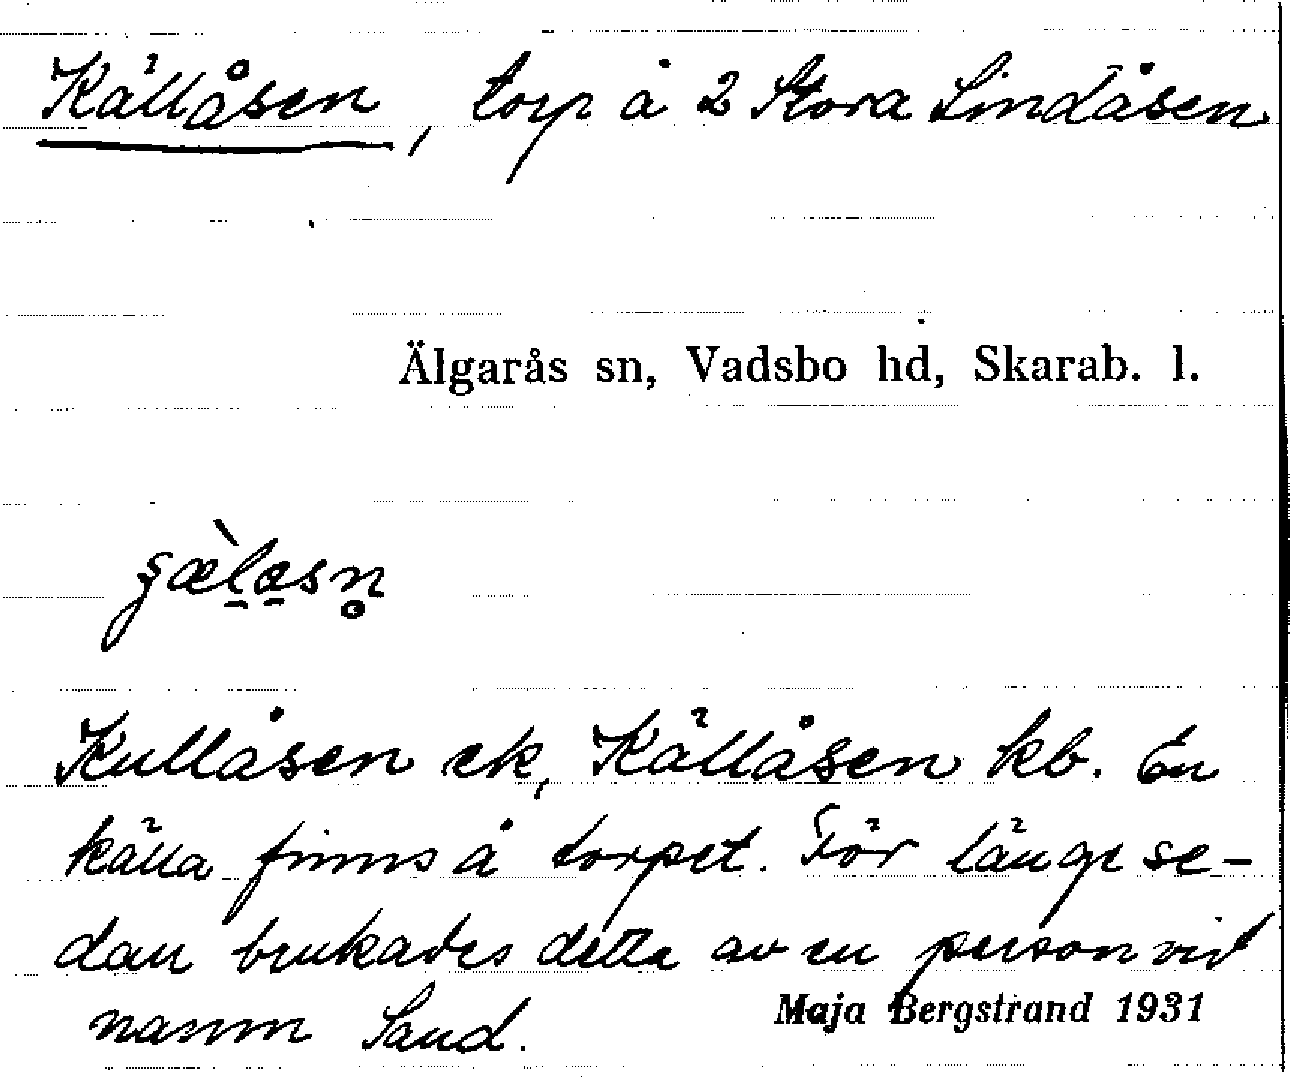 Källåsen, torp å 2 Stora Lindåsen
Älgarås sn, Vadsbo hd, Skarab. l.
Kullåsen ek, Källåsen kb. En
källa finns å torpet. För länge se-
dan brukades detta av en person vid
namn Sand.
Maja Bergstrand 1931